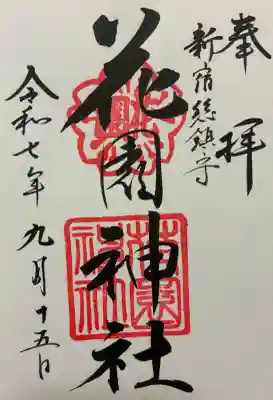 奉拝
新宿総鎮守
花園神社
令和七年九月十五日